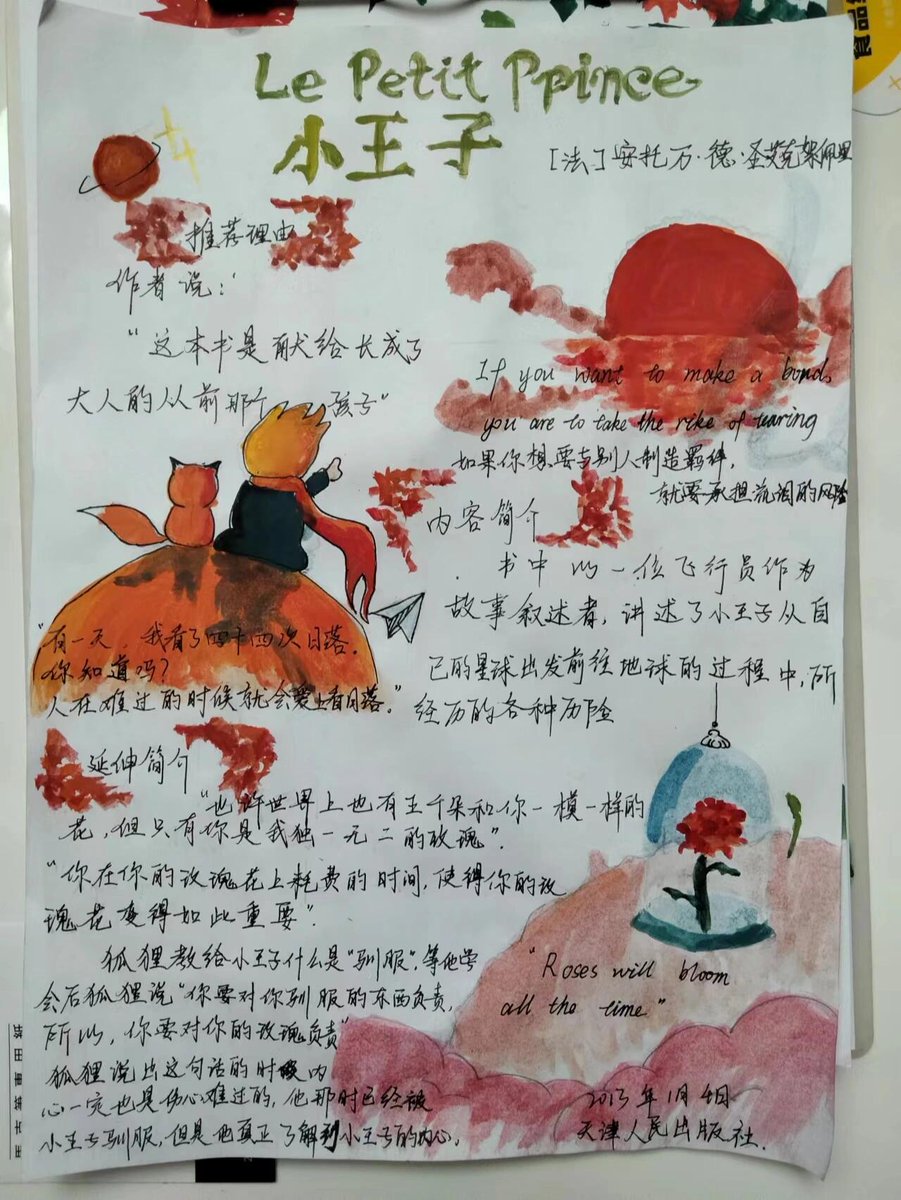 Le Petit Prince
小王子
[法]安托万·德·圣艾克絮佩里
推荐理由
作者说：
"这本书是献给长成了
大人的从前那个孩子"
If you want to make a bond,
you are to take the rike of tearing
如果你想要与别人制造羁绊，
就要承担流泪的风险
内容简介
书中以一位飞行员作为
故事叙述者，讲述了小王子从自
己的星球出发前往地球的过程中，所
经历的各种历险
"有一天，我看了四十四次日落。
你知道吗？
人在难过的时候就会爱上看日落。"
延伸简介
"也许世界上也有五千朵和你一模一样的
花，但只有你是我独一无二的玫瑰"
"你在你的玫瑰花上耗费的时间，使得你的玫
瑰花变得如此重要"
狐狸教给小王子什么是"驯服"，等他学
会后狐狸说"你要对你驯服的东西负责，
所以，你要对你的玫瑰负责"
狐狸说出这句话的时候内
心一定也是伤心难过的，他那时已经被
小王子驯服，但是他真正了解到小王子的内心。
"Roses will bloom
all the time"
2013年1月4日
天津人民出版社.